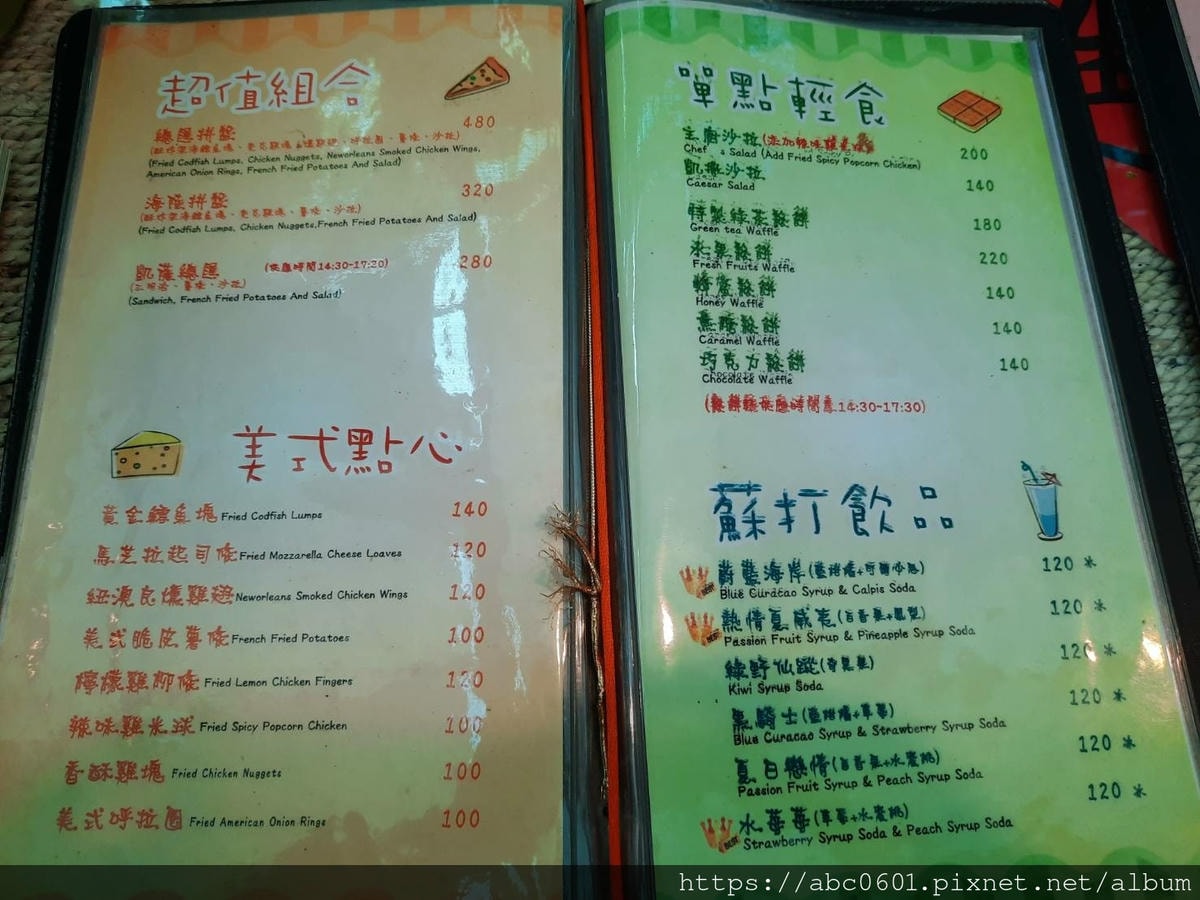 超值組合
總匯拼盤 480
(Fried Codfish Lumps, Chicken Nuggets, Neworleans Smoked Chicken Wings,
American Onion Rings, French Fried Potatoes And Salad)
海陸拼盤 320
(Fried Codfish Lumps, Chicken Nuggets,French Fried Potatoes And Salad)
凱薩總匯 (供應時間14:30-17:30) 280
(三明治、薯條、沙拉)
(Sandwich, French Fried Potatoes And Salad)
美式點心
黃金鱈魚塊 Fried Codfish Lumps 140
馬芝拉起司條 Fried Mozzarella Cheese Loaves 120
紐澳良燻雞翅 Neworleans Smoked Chicken Wings 120
美式脆皮薯條 French Fried Potatoes 100
檸檬雞柳條 Fried Lemon Chicken Fingers 120
辣味雞米球 Fried Spicy Popcorn Chicken 100
香酥雞塊 Fried Chicken Nuggets 100
美式呼拉圈 Fried American Onion Rings 100
單點輕食
主廚沙拉 200
Chef's Salad (Add Fried Spicy Popcorn Chicken)
凱撒沙拉 140
Caesar Salad
特製綠茶鬆餅 180
Green tea Waffle
水果鬆餅 220
Fresh Fruits Waffle
蜂蜜鬆餅 140
Honey Waffle
焦糖鬆餅 140
Caramel Waffle
巧克力鬆餅 140
Chocolate Waffle
(鬆餅類供應時間為14:30-17:30)
蘇打飲品
蔚藍海岸 120 冰
Blue Curacao Syrup & Calpis Soda
熱情夏威夷(百香果+鳳梨) 120 冰
Passion Fruit Syrup & Pineapple Syrup Soda
綠野仙蹤(奇異果) 120 冰
Kiwi Syrup Soda
黑騎士(藍柑橘+草莓) 120 冰
Blue Curacao Syrup & Strawberry Syrup Soda
夏日戀情(百香果+水蜜桃) 120 冰
Passion Fruit Syrup & Peach Syrup Soda
水莓莓(草莓+水蜜桃) 120 冰
Strawberry Syrup Soda & Peach Syrup Soda
https://abc0601.pixnet.net/album